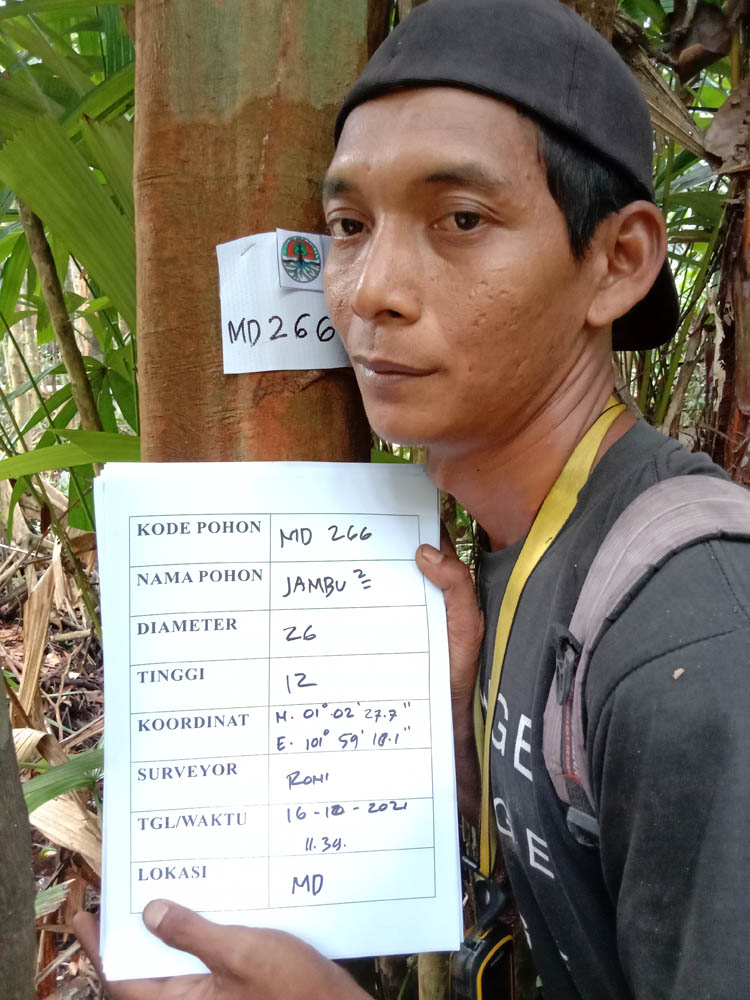 MD 266
KODE POHON MD 266
NAMA POHON JAMBU 2
DIAMETER 26
TINGGI 12
KOORDINAT N. 01° 02' 27.7"
E. 101° 59' 18.1"
SURVEYOR RONI
TGL/WAKTU 16-10-2021
11.39.
LOKASI MD
GE
GE